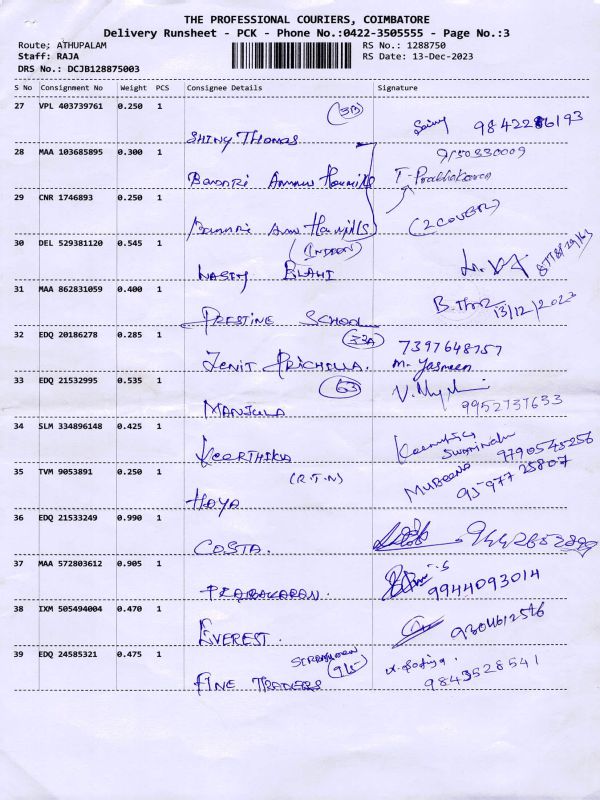 THE PROFESSIONAL COURIERS, COIMBATORE
Delivery Runsheet - PCK - Phone No.:0422-3505555 - Page No.:3
Route; ATHUPALAM RS No.: 1288750
Staff: RAJA RS Date: 13-Dec-2023
DRS No.: DCJB128875003
S No Consignment No Weight PCS Consignee Details Signature
27 VPL 403739761 0.250 1
SHINY THOMAS
28 MAA 103685895 0.300 1 9150330009
T-Prabhakaran
29 CNR 1746893 0.250 1
(2 COVER)
30 DEL 529381120 0.545 1
31 MAA 862831059 0.400 1
PRESTINE SCHOOL 13/12/2023
32 EDQ 20186278 0.285 1 33A 7397648757
ZENIT PRICHILLA. M. Yasmeen
33 EDQ 21532995 0.535 1 63
MANJULA 9952737633
34 SLM 334896148 0.425 1
KEERTHIKA 9790545256
35 TVM 9053891 0.250 1 (R.T.N) MUBEENA
HAYA 95977 25807
36 EDQ 21533249 0.990 1
COSTA.
37 MAA 572803612 0.905 1
PRABAKARAN. 9944093014
38 IXM 505494004 0.470 1
EVEREST.
39 EDQ 24585321 0.475 1
FINE TRADERS 9843528541